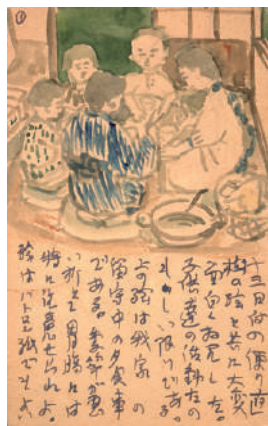 ①
十三日白の便り直
樹の絵と共に大変
面白く拝見した。
子供達の活動たの
もしい限りである。
上の絵は我家の
留守中の夕食事
である。季節が悪
い折とて胃腸には
特に注意せられよ。
絵はハトロン紙でもよ、